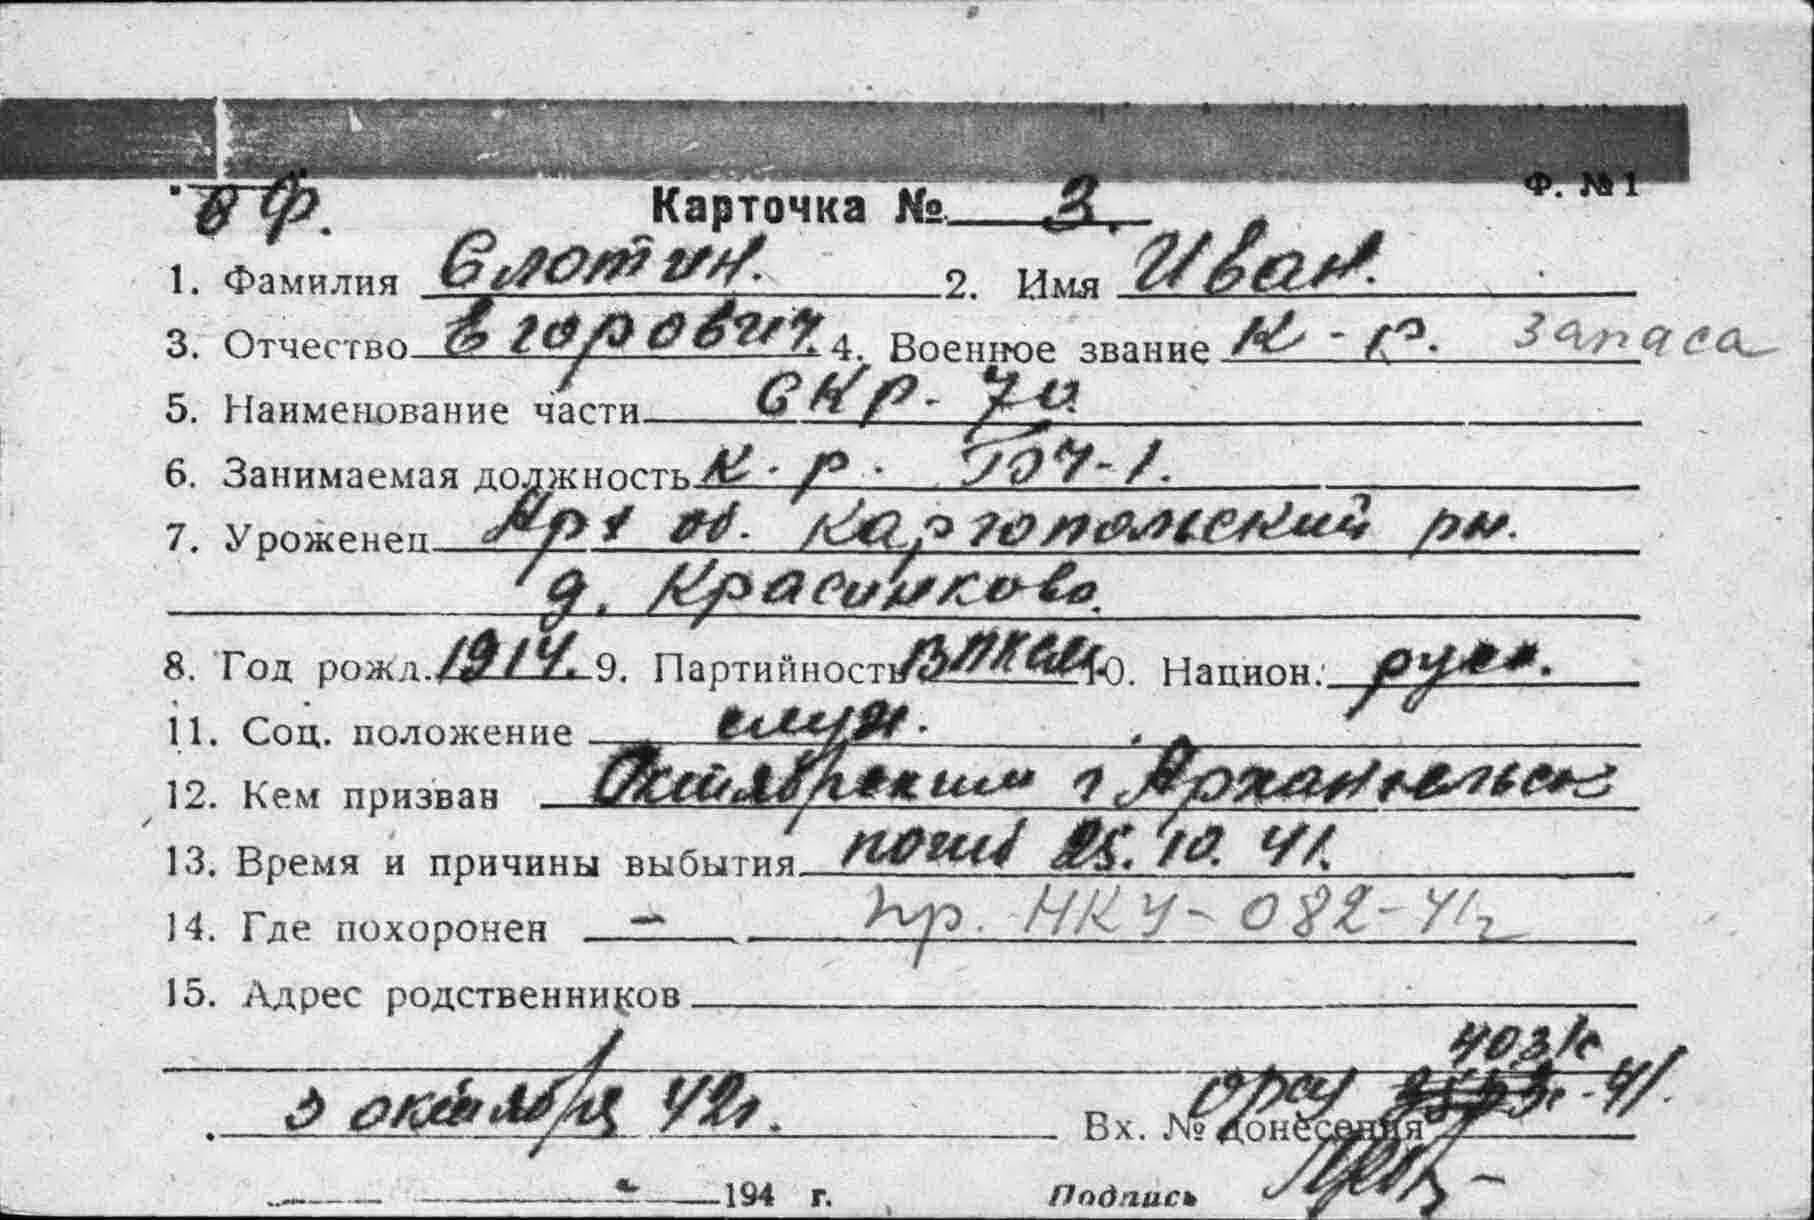 Ф. №1
Ф.
Карточка № 3.
1. Фамилия Слотин. 2. Имя Иван.
3. Отчество Егорович. 4. Военное звание к-р. запаса
5. Наименование части СКР-70
6. Занимаемая должность к-р. БЧ-1.
7. Уроженец Арх об. Каргопольский рн.
д. Красинково.
8. Год рожд. 1914. 9. Партийность ВЛКСМ 10. Национ. русск.
11. Соц. положение служ.
12. Кем призван Октябрьским г Архангельск
13. Время и причины выбытия погиб 25.10.41.
14. Где похоронен — пр. НКУ-082-41г
15. Адрес родственников
4031с
3 октября 42г. Вх. № донесения орсу -41.
194 г. Подпись